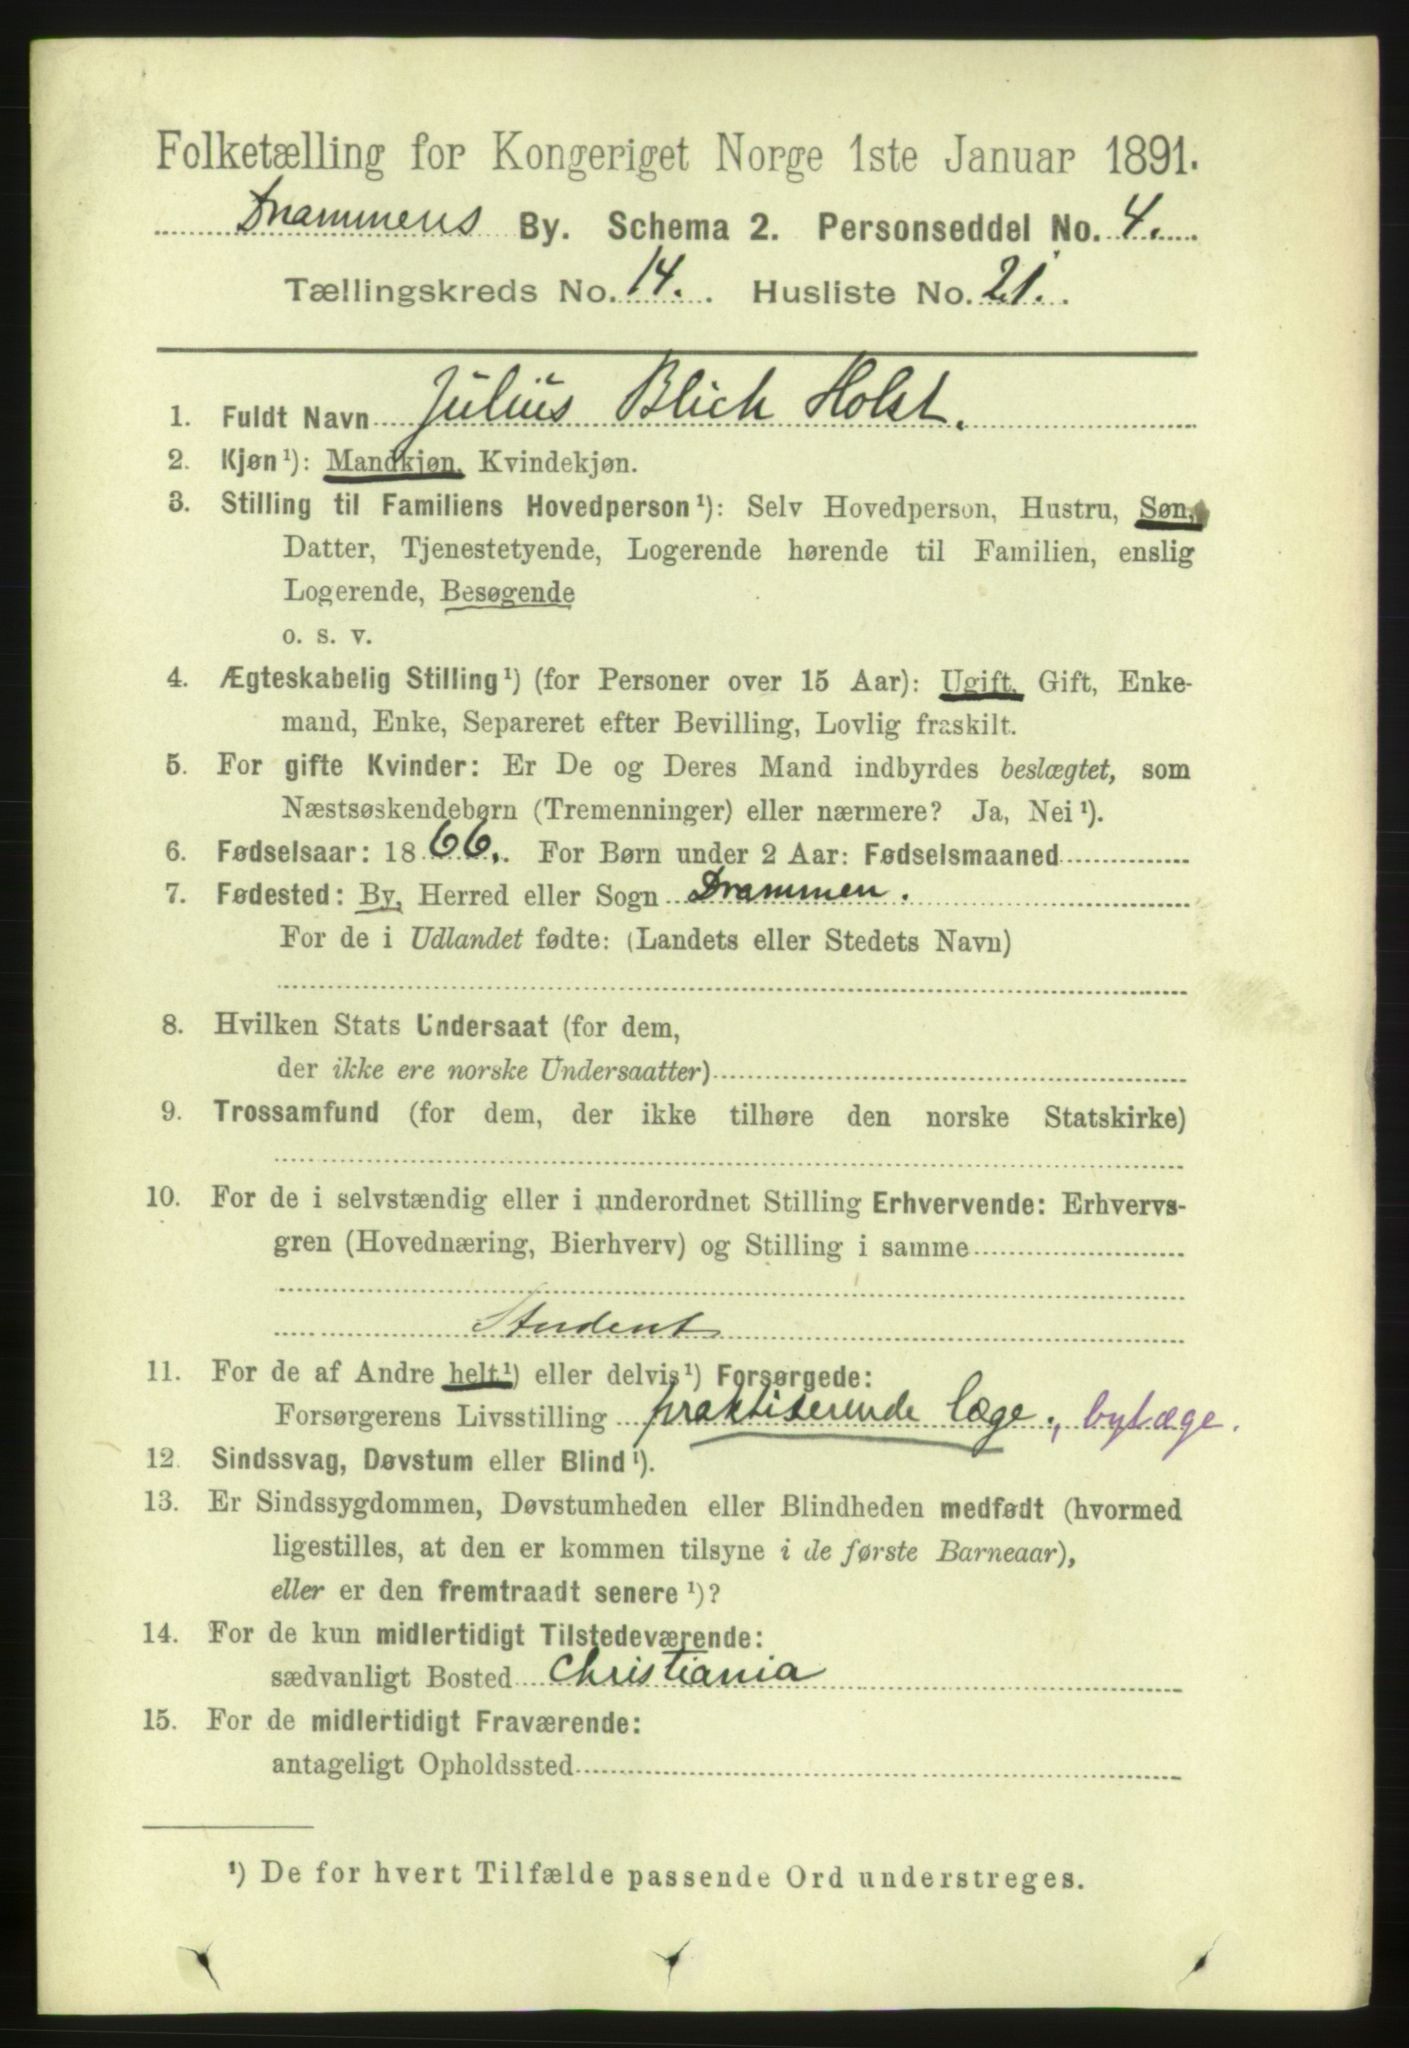 Folketælling for Kongeriget Norge 1ste Januar 1891.
Drammens By. Schema 2. Personseddel No. 4.
Tællingskreds No. 14. Husliste No. 21.
1. Fuldt Navn Julius Blich Holst.
2. Kjøn¹): Mandkjøn, Kvindekjøn.
3. Stilling til Familiens Hovedperson¹): Selv Hovedperson, Hustru, Søn,
Datter, Tjenestetyende, Logerende hørende til Familien, enslig
Logerende, Besøgende
o. s. v.
4. Ægteskabelig Stilling¹) (for Personer over 15 Aar): Ugift, Gift, Enke-
mand, Enke, Separeret efter Bevilling, Lovlig fraskilt.
5. For gifte Kvinder: Er De og Deres Mand indbyrdes beslægtet, som
Næstsøskendebørn (Tremenninger) eller nærmere? Ja, Nei¹).
6. Fødselsaar: 1866. For Børn under 2 Aar: Fødselsmaaned
7. Fødested: By, Herred eller Sogn Drammen.
For de i Udlandet fødte: (Landets eller Stedets Navn)
8. Hvilken Stats Undersaat (for dem,
der ikke ere norske Undersaatter)
9. Trossamfund (for dem, der ikke tilhøre den norske Statskirke)
10. For de i selvstændig eller i underordnet Stilling Erhvervende: Erhvervs-
gren (Hovednæring, Bierhverv) og Stilling i samme
Student
11. For de af Andre helt¹) eller delvis¹) Forsørgede:
Forsørgerens Livsstilling praktiserende læge., bylæge.
12. Sindssvag, Døvstum eller Blind¹).
13. Er Sindssygdommen, Døvstumheden eller Blindheden medfødt (hvormed
ligestilles, at den er kommen tilsyne i de første Barneaar),
eller er den fremtraadt senere¹)?
14. For de kun midlertidigt Tilstedeværende:
sædvanligt Bosted Christiania
15. For de midlertidigt Fraværende:
antageligt Opholdssted
¹) De for hvert Tilfælde passende Ord understreges.